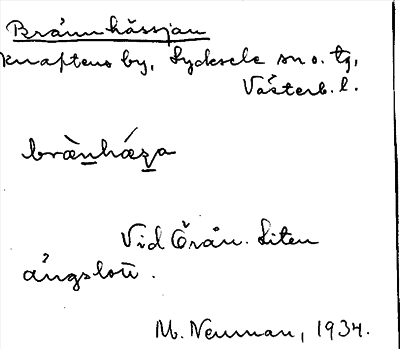 Brännhässjan
Knaptens by, Lycksele sn o. tg,
Västerb. l.
bræ̀nháʒa
Vid Örån. Liten
ängslott.
M. Neuman, 1934.